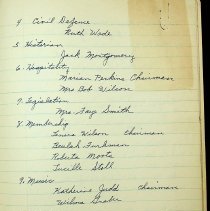 4. Civil Defense
Ruth Wade
5. Historian
Jack Montgomery
6. Hospitality
Marian Perkins Chairman
Mrs Bob Wilson
7. Legislation
Mrs. Faye Smith
8. Membership
Wilson chairman
Beulah Funkman
Roberta Moots
Lucille Stoll
9. Music
Katherine Judd chairman
Wilma